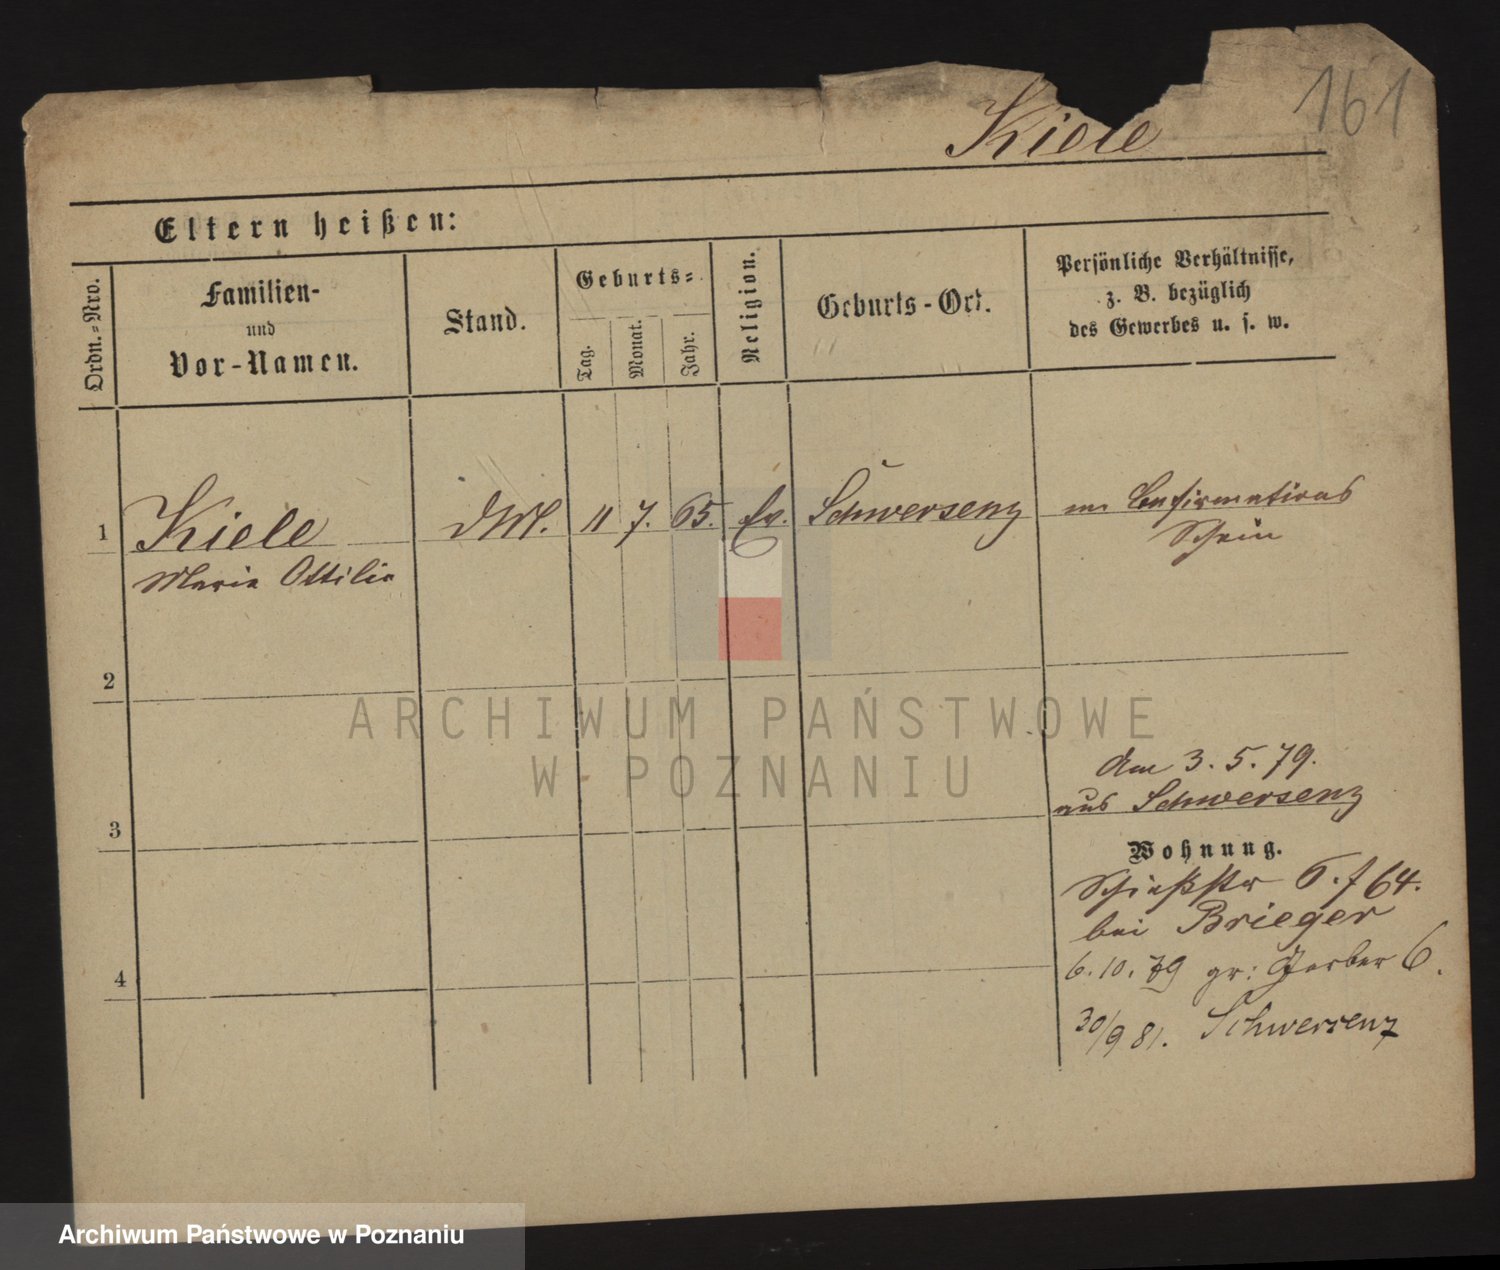 161
Kiele
Eltern heißen:
Ordn.-Nro.
Familien-
und
Vor-Namen.
Stand.
Geburts-
Tag.
Monat.
Jahr.
Religion.
Geburts-Ort.
Persönliche Verhältnisse,
z. B. bezüglich
des Gewerbes u. s. w.
1 Kiele DM. 11 7. 65. Ev. Schwersenz Confirmations
Schein
Marie Ottilie
2
ARCHIWUM PAŃSTWOWE
W POZNANIU
am 3. 5. 79.
aus Schwersenz
3
Wohnung.
Schießstr 6. f 64.
bei Brieger
6. 10. 79 gr: Gerber 6.
4
30/9 81. Schwersenz
Archiwum Państwowe w Poznaniu